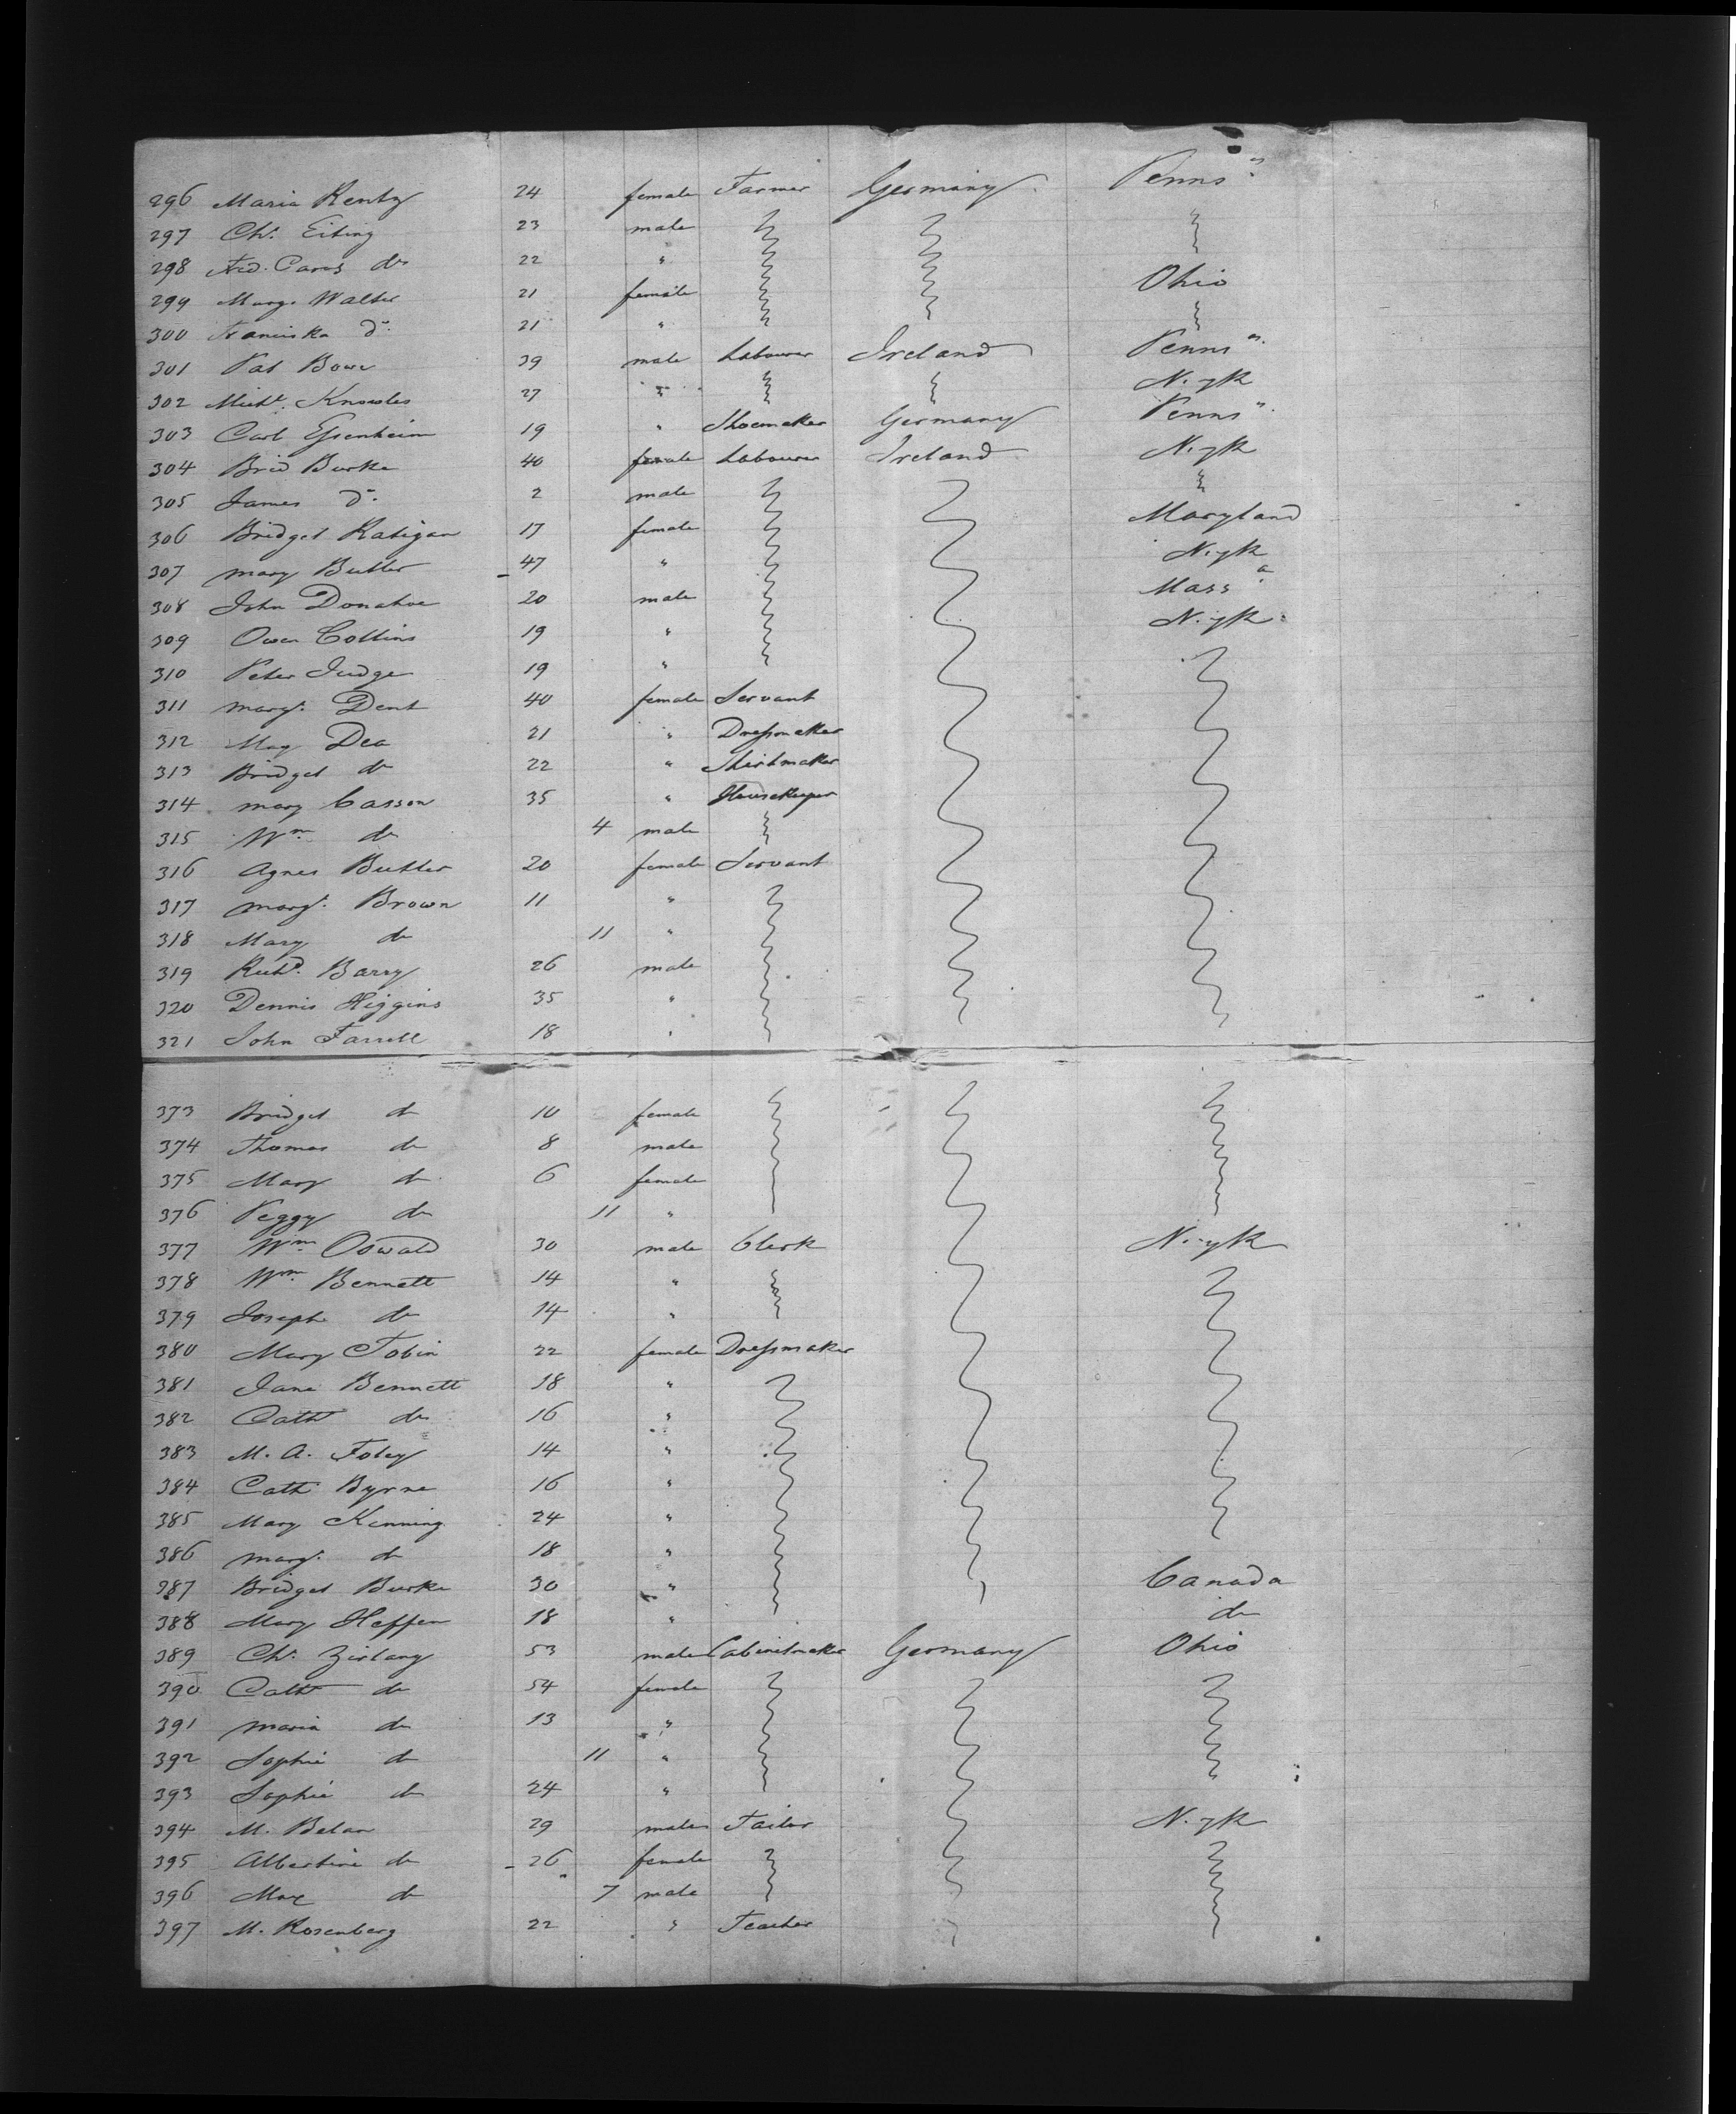 296 Maria Rentz 24 female Farmer Germany Penns a
297 Chs. Eiting 23 male
298 do 22 "
299 Marg. Walter 21 female Ohio
300 Franciska do. 21 "
301 Pat Bowe 39 male Labourer Ireland Penns a.
302 Michl. Knowles 27 " N. yk
303 Carl 19 " Shoemaker Germany Penns a.
304 Brid Burke 40 female Labourer Ireland N. yk
305 James do. 2 male
306 Bridget Ratigan 17 female Maryland
307 Mary Butler 47 " N. yk
308 John Donahoe 20 male Mass a.
309 Owen Collins 19 " N. yk.
310 Peter Judge 19 "
311 Margt. Dent 40 female Servant
312 May Dea 21 " Dressmaker
313 Bridget do 22 " Shirtmaker
314 Mary Casson 35 " Housekeeper
315 Wm. do 4 male
316 Agnes Butler 20 female Servant
317 Margt. Brown 11 "
318 Mary do 11 "
319 Richd. Barry 26 male
320 Dennis Higgins 35 "
321 John Farrell 18 "
373 Bridget do 10 female
374 Thomas do 8 male
375 Mary do 6 female
376 Peggy do 11 "
377 Wm. Oswald 30 male Clerk N. yk
378 Wm. Bennett 14 "
379 Joseph do 14 "
380 Mary Tobin 22 female Dressmaker
381 Jane Bennett 18 "
382 Cath do 16 "
383 M. A. Foley 14 "
384 Cath Byrne 16 "
385 Mary Kenning 24 "
386 Margt. do 18 "
387 Bridget Burke 30 " Canada
388 Mary Heffen 18 " do
389 Chs. Zirlang 53 male Cabinetmaker Germany Ohio
390 Cath do 54 female
391 Maria do 13 "
392 Sophie do 11 "
393 Sophie do 24 "
394 M. Belan 29 male Tailor N. yk
395 Albertine do 26 female
396 Max do 7 male
397 M. Rosenberg 22 " Teacher